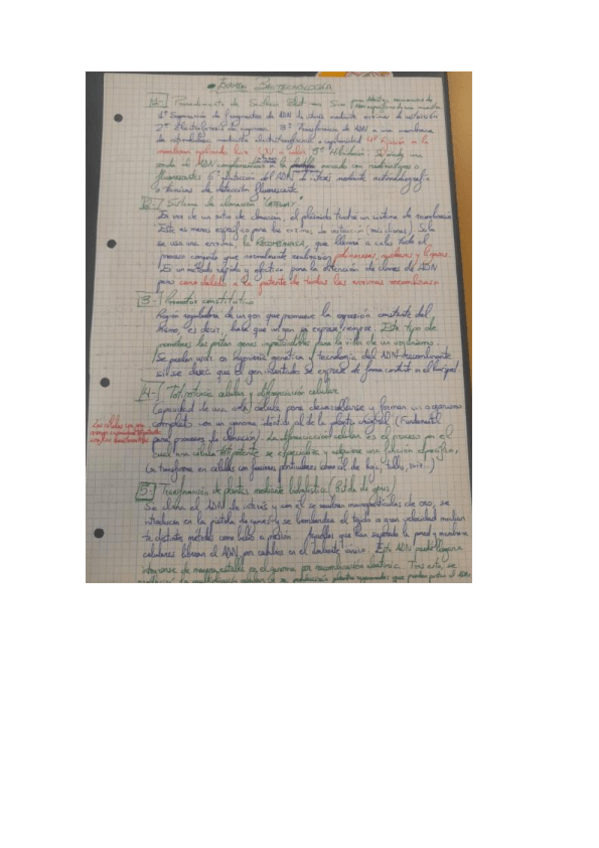 EXAMEN BIOTECNOLOGÍA
1- Procedimiento de Southern Blot: Sirve para detectar secuencias de
1º Separación de fragmentos de ADN de interés mediante enzimas de restricción
2º Electroforesis de agarosa. 3º Transferencia de ADN a una membrana
de mediante electrotransferencia o capilaridad 4º Fijación a la
membrana aplicando luz UV o calor 5º Hibridación: Se añade una
sonda de ADN complementaria a la marcada con radioisótopos o
fluorescentes 6º detección del ADN de interés mediante autorradiografía
o técnicas de detección fluorescente
2- Sistema de clonación "GATEWAY"
En vez de un sitio de clonación, el plásmido tendrá un sistema de recombinación
Este es menos específico para las enzimas de restricción (más clones). Solo
se usa una enzima, la RECOMBINASA, que llevará a cabo todo el
proceso conjunto que normalmente realizarían polimerasas, nucleasas y ligasas.
Es un método rápido y efectivo para la obtención de clones de ADN
pero caro debido a la patente de todas las enzimas recombinasas
3- Promotor constitutivo
Región reguladora de un gen que promueve la expresión constante del
mismo, es decir, hará que un gen se exprese siempre. Este tipo de
promotores los portan genes imprescindibles para la vida de un organismo
Se pueden usar en ingeniería genética y tecnología del ADN recombinante
si se desea que el gen insertado se exprese de forma constante en el huésped.
4- Totipotencia celular y diferenciación celular
Capacidad de una sola célula para desarrollarse y formar un organismo
completo con un genoma idéntico al de la planta original (Fundamental
para procesos de clonación). La diferenciación celular es el proceso por el
cual una célula totipotente se especializa y adquiere una función específica,
(se transforma en células con funciones particulares como cél. de hoja, tallo, raíz...)
Las células con una
5- Transformación de plantas mediante biobalística (Pistola de genes)
Se clona el ADN de interés y con él se recubren micropartículas de oro, se
introducen en la pistola de genes y se bombardea el tejido a gran velocidad median-
te distintos métodos como helio a presión. Aquellas que han superado la pared y membrana
celulares liberan el ADN por cambios en el ambiente iónico. Este ADN puede llegar a
integrarse de manera estable en el genoma por recombinación Tras esto, se